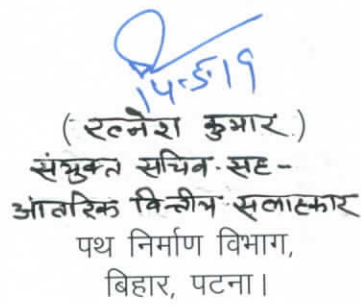 14.5.19
(रत्नेश कुमार)
संयुक्त सचिव-सह-
आंतरिक वित्तीय सलाहकार
पथ निर्माण विभाग,
बिहार, पटना।